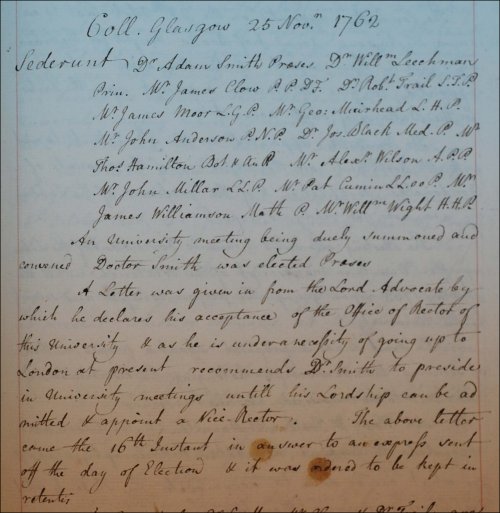 Coll. Glasgow 25 Novr. 1762
Sederunt Dr. Adam Smith Præses Dr. Willm Leechman
Prin. Mr. James Clow P.P. D.F. Dr. Robt. Trail S.T.P.
Mr. James Moor L.G.P. Mr. Geo: Muirhead L.H.P.
Mr. John Anderson P.N.P. Dr. Jos. Black Med. P. Mr.
Thos. Hamilton Bot. & An. P. Mr. Alexr. Wilson A.P.P.
Mr. John Millar L.L.P. Mr. Pat Cumin LL.oo P. Mr.
James Williamson Math P. Mr. Willm Wight H.H.P.
An University meeting being duely summoned and
convened Doctor Smith was elected Præses
A Letter was given in from the Lord Advocate by
which he declares his acceptance of the Office of Rector of
this University & as he is under a necessity of going up to
London at present recommends Dr. Smith to preside
in University meetings untill his Lordship can be ad
mitted & appoint a Vice-Rector. The above letter
came the 16th Instant in answer to an express sent
off the day of Election & it was ordered to be kept in
retentis